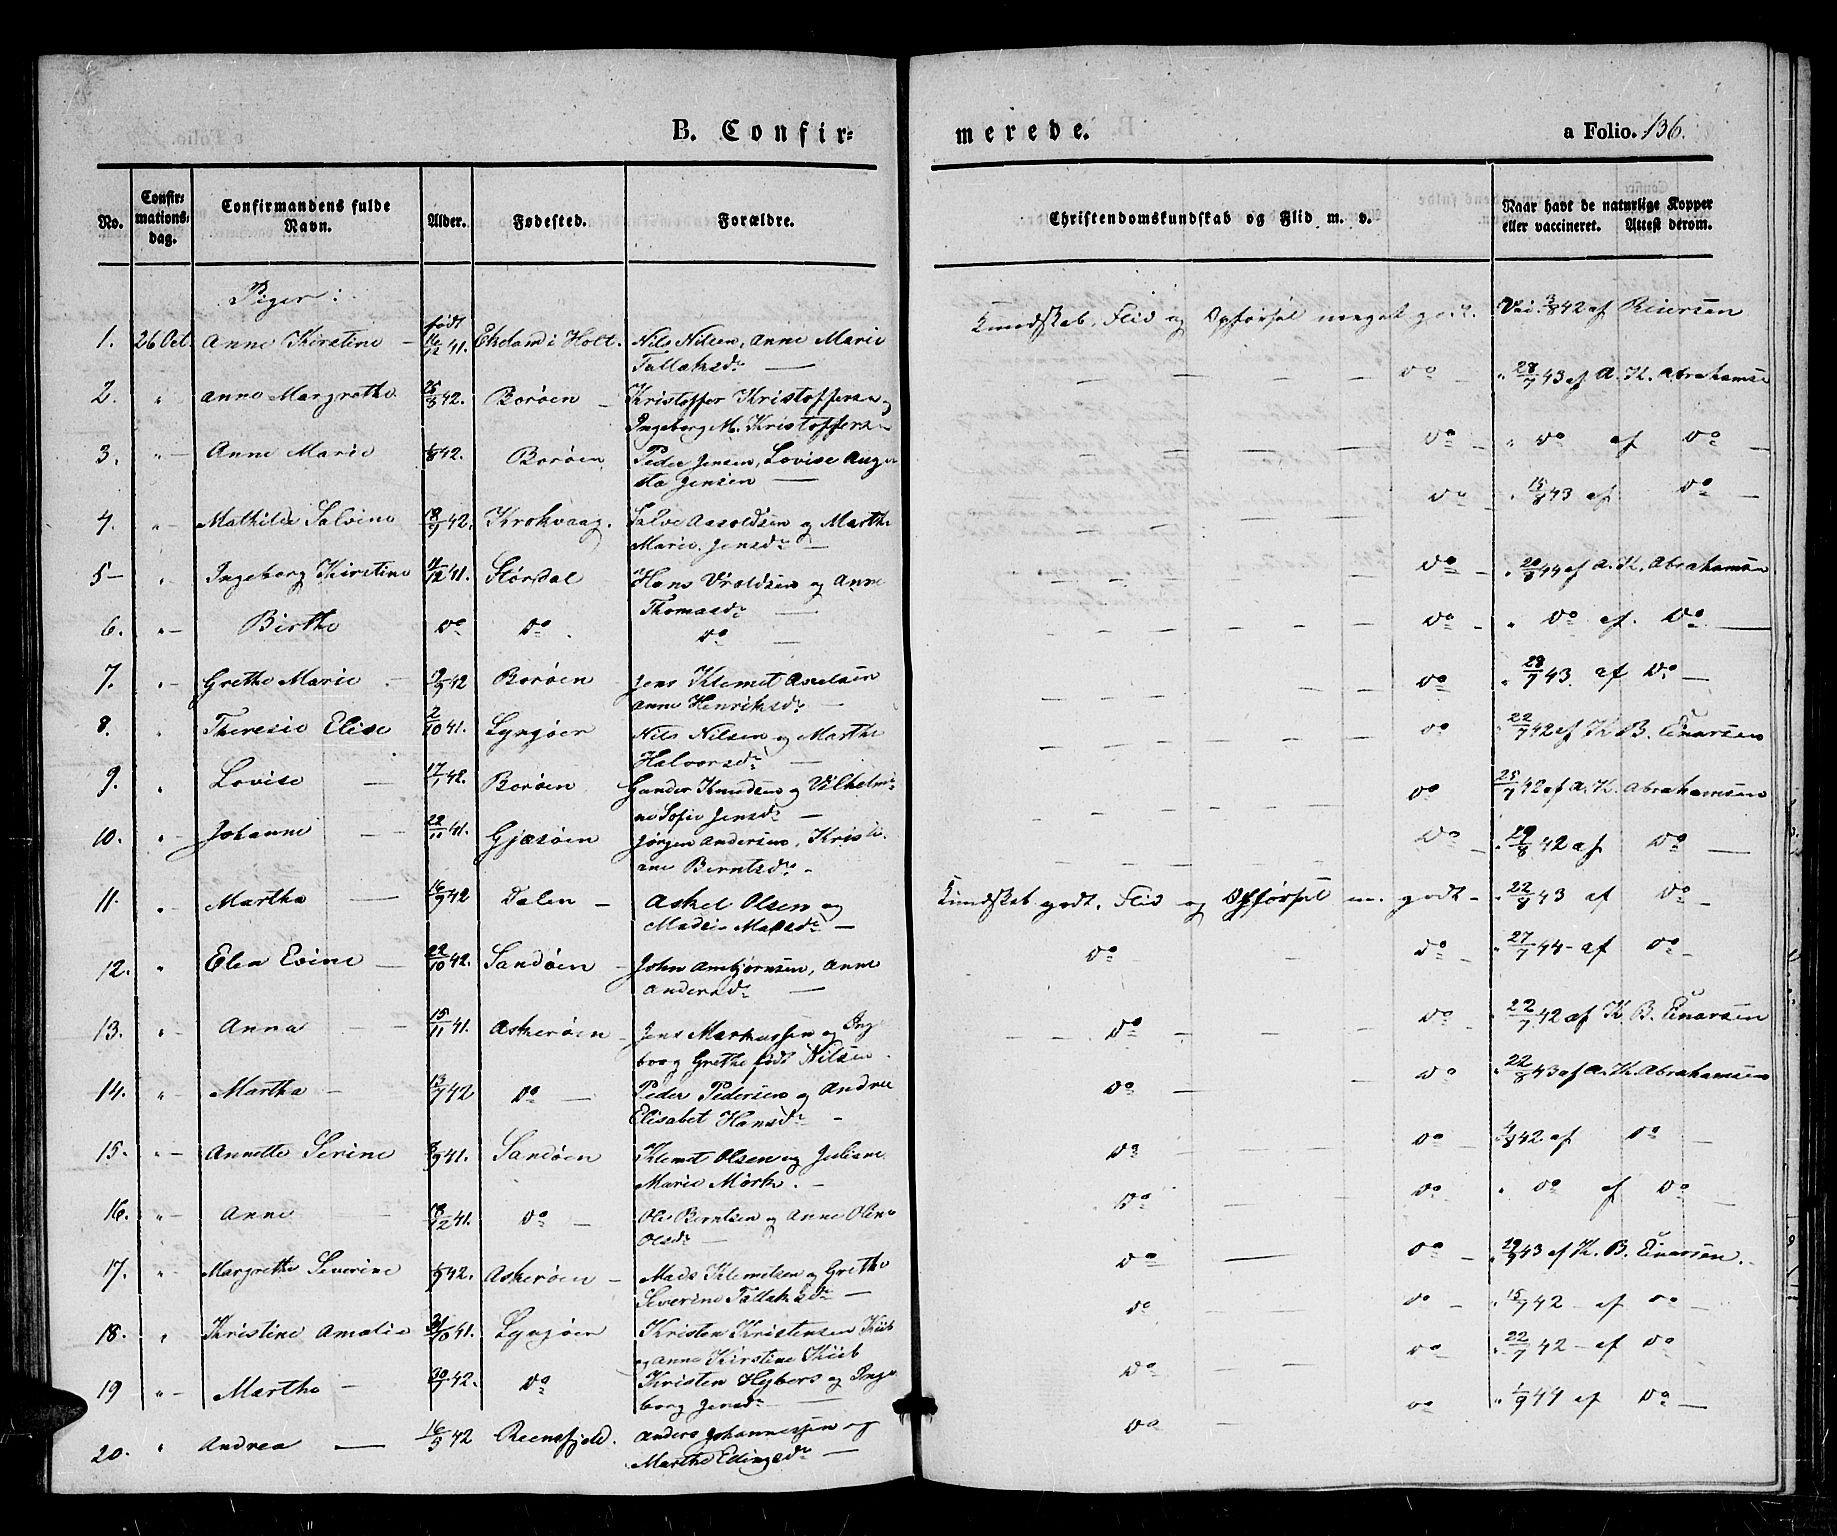 B. Confir=
merede.
a Folio. 136.
No.
Confir=
mations=
dag.
Confirmandens fulde
Navn.
Alder.
Fødested.
Forældre.
Christendomskundskab og Flid m. v.
Naar havt de naturlige Kopper
eller vaccineret. Attest derom.
Piger:
1. 26 Oct. Anne Kirstine – født 16/12 41. Ekeland i Holt. Nils Nilsen, Anne Marie
Tallaksdr –
Kundskab, Flid og Opførsel meget godt. Vac. 3/8 42 af Reiersen
2. " Anne Margrethe 25/3 42. Borøen – Kristoffer Kristoffersen og
Ingeborg M. Kristoffers –
do – " 28/7 43 af A. K. Abrahamse
3. " – Anne Marie 1/8 42. Borøen Peder Jensen, Lovise Augu
sta Jensen –
do " do af do
4. " – Mathilde Salvine 18/9 42. Krokvaag. Salve Aasoldsen og Marthe
Marie Jensdr –
do – " 15/8 43 af do –
5 – " Ingeborg Kirstine 11/12 41. Størdal Hans Vroldsen og Anne
Thomasdr –
do – " 20/8 44 af A. K. Abrahamsen
6. " – Birthe do do do –
do – " do af do –
7. " – Grethe Marie – 9/9 42 Borøen Jens Klemet Axelsen
Anne Henriksdr –
do " 28/7 43. af do –
8. " Theresie Elise 2/10 41. Lyngøen Nils Nilsen og Marthe
Halvorsdr –
do " 22/7 42 af K. B. Einarsen
9. " Lovise – 17/1 42. Borøen Gunder Knudsen og Vilhelmi=
ne Sofie Jensdr –
do 25/7 42 af A. K. Abrahamsen
10. " – Johanne – 22/11 41. Gjæsøen Jørgen Andersen, Kristi=
ane Berntsdr –
do – " 29/8 42 af do –
11. " – Marthe – 16/9 42 Dalen – Askel Olsen og
Madsdr –
Kundskab godt. Flid og Opførsel m. godt – " 22/8 43 af do –
12. " Elen Evine – 22/10 42. Sandøen – John Ambjørnsen, Anne
Andersdr –
do – do – " 27/7 44 – af do –
13. " – Anna – 15/11 41. Askerøen – Jens Markussen og Inge
borg Grethe født Nilsen.
do – do – " 22/7 42 af K. B. Einarsen
14. " – Marthe – 13/7 42 do – Peder Pedersen og Andrea
Elisabet Hansdr –
do – do – " 22/8 43 af A. K. Abrahamsen
15. " – Annette Serine 8/9 41. Sandøen Klemet Olsen og Juliane
Marie Mørk. –
do – do – " 4/8 42 af do –
16. " – Anne – 18/12 41. do – Ole Berntsen og Anne Oline
Olsdr –
do – do – " do af do –
17. " – Margrethe Severine 1/9 42. Askerøen – Mads Klemetsen og Grethe
Severine Tallaksdr –
do – do – " 29/9 43 af K. B. Einarsen. –
18. " Kristine Amalie 31/10 41. Lyngøen Kristen Kristensen Kiib
og Anne Kirstine Kiib
do do – " 15/7 42 – af do –
19 " – Marthe – 30/7 42. do Kristen Hybers og Inge
borg Jensdr –
do – do – " 22/7 42 – af do
20. " Andrea – 16/5 42 Reensfjeld. Anders Johannessen og
Marthe Edingsdr –
do – do – " 1/9 44 af do –